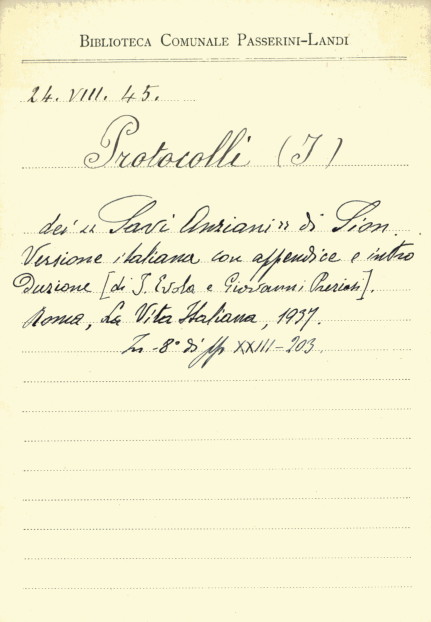 BIBLIOTECA COMUNALE PASSERINI-LANDI
24. VIII. 45.
Protocolli (I)
dei « Savi Anziani » di Sion.
Versione italiana con appendice e intro
duzione [di J. Evola e Giovanni Preziosi].
Roma, La Vita Italiana, 1937.
In -8° di pp XXIII-203.